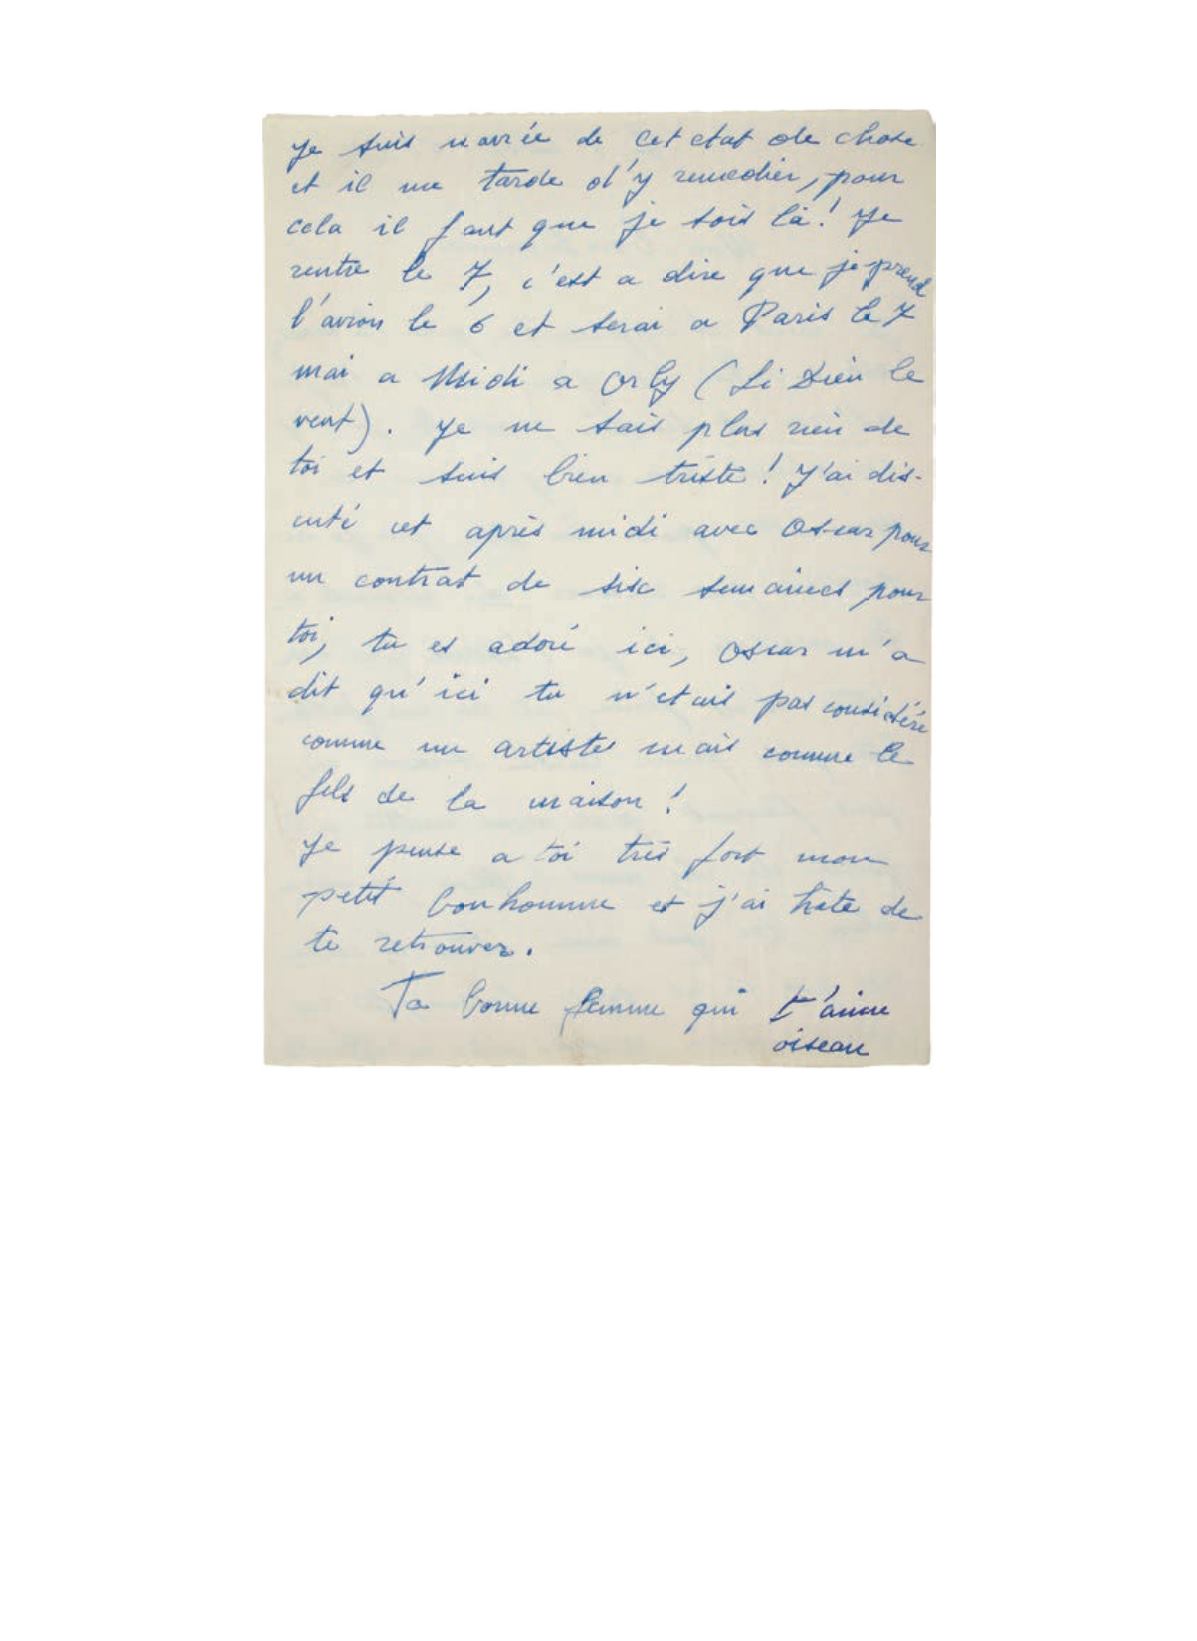 Je suis navrée de cet etat de chose
et il me tarde d'y remedier, pour
cela il faut que je sois là! Je
rentre le 7, c'est a dire que je prend
l'avion le 6 et serai a Paris le 7
mai a Midi a Orly (Si Dieu le
veut). Je ne sais plus rien de
toi et suis bien triste! J'ai dis-
cuté cet après midi avec Oscar pour
un contrat de six semaines pour
toi, tu es adoré ici, Oscar m'a
dit qu'ici tu n'etais pas considéré
comme un artiste mais comme le
fils de la maison!
Je pense a toi très fort mon
petit bonhomme et j'ai hâte de
te retrouver.
Ta bonne femme qui t'aime
oiseau